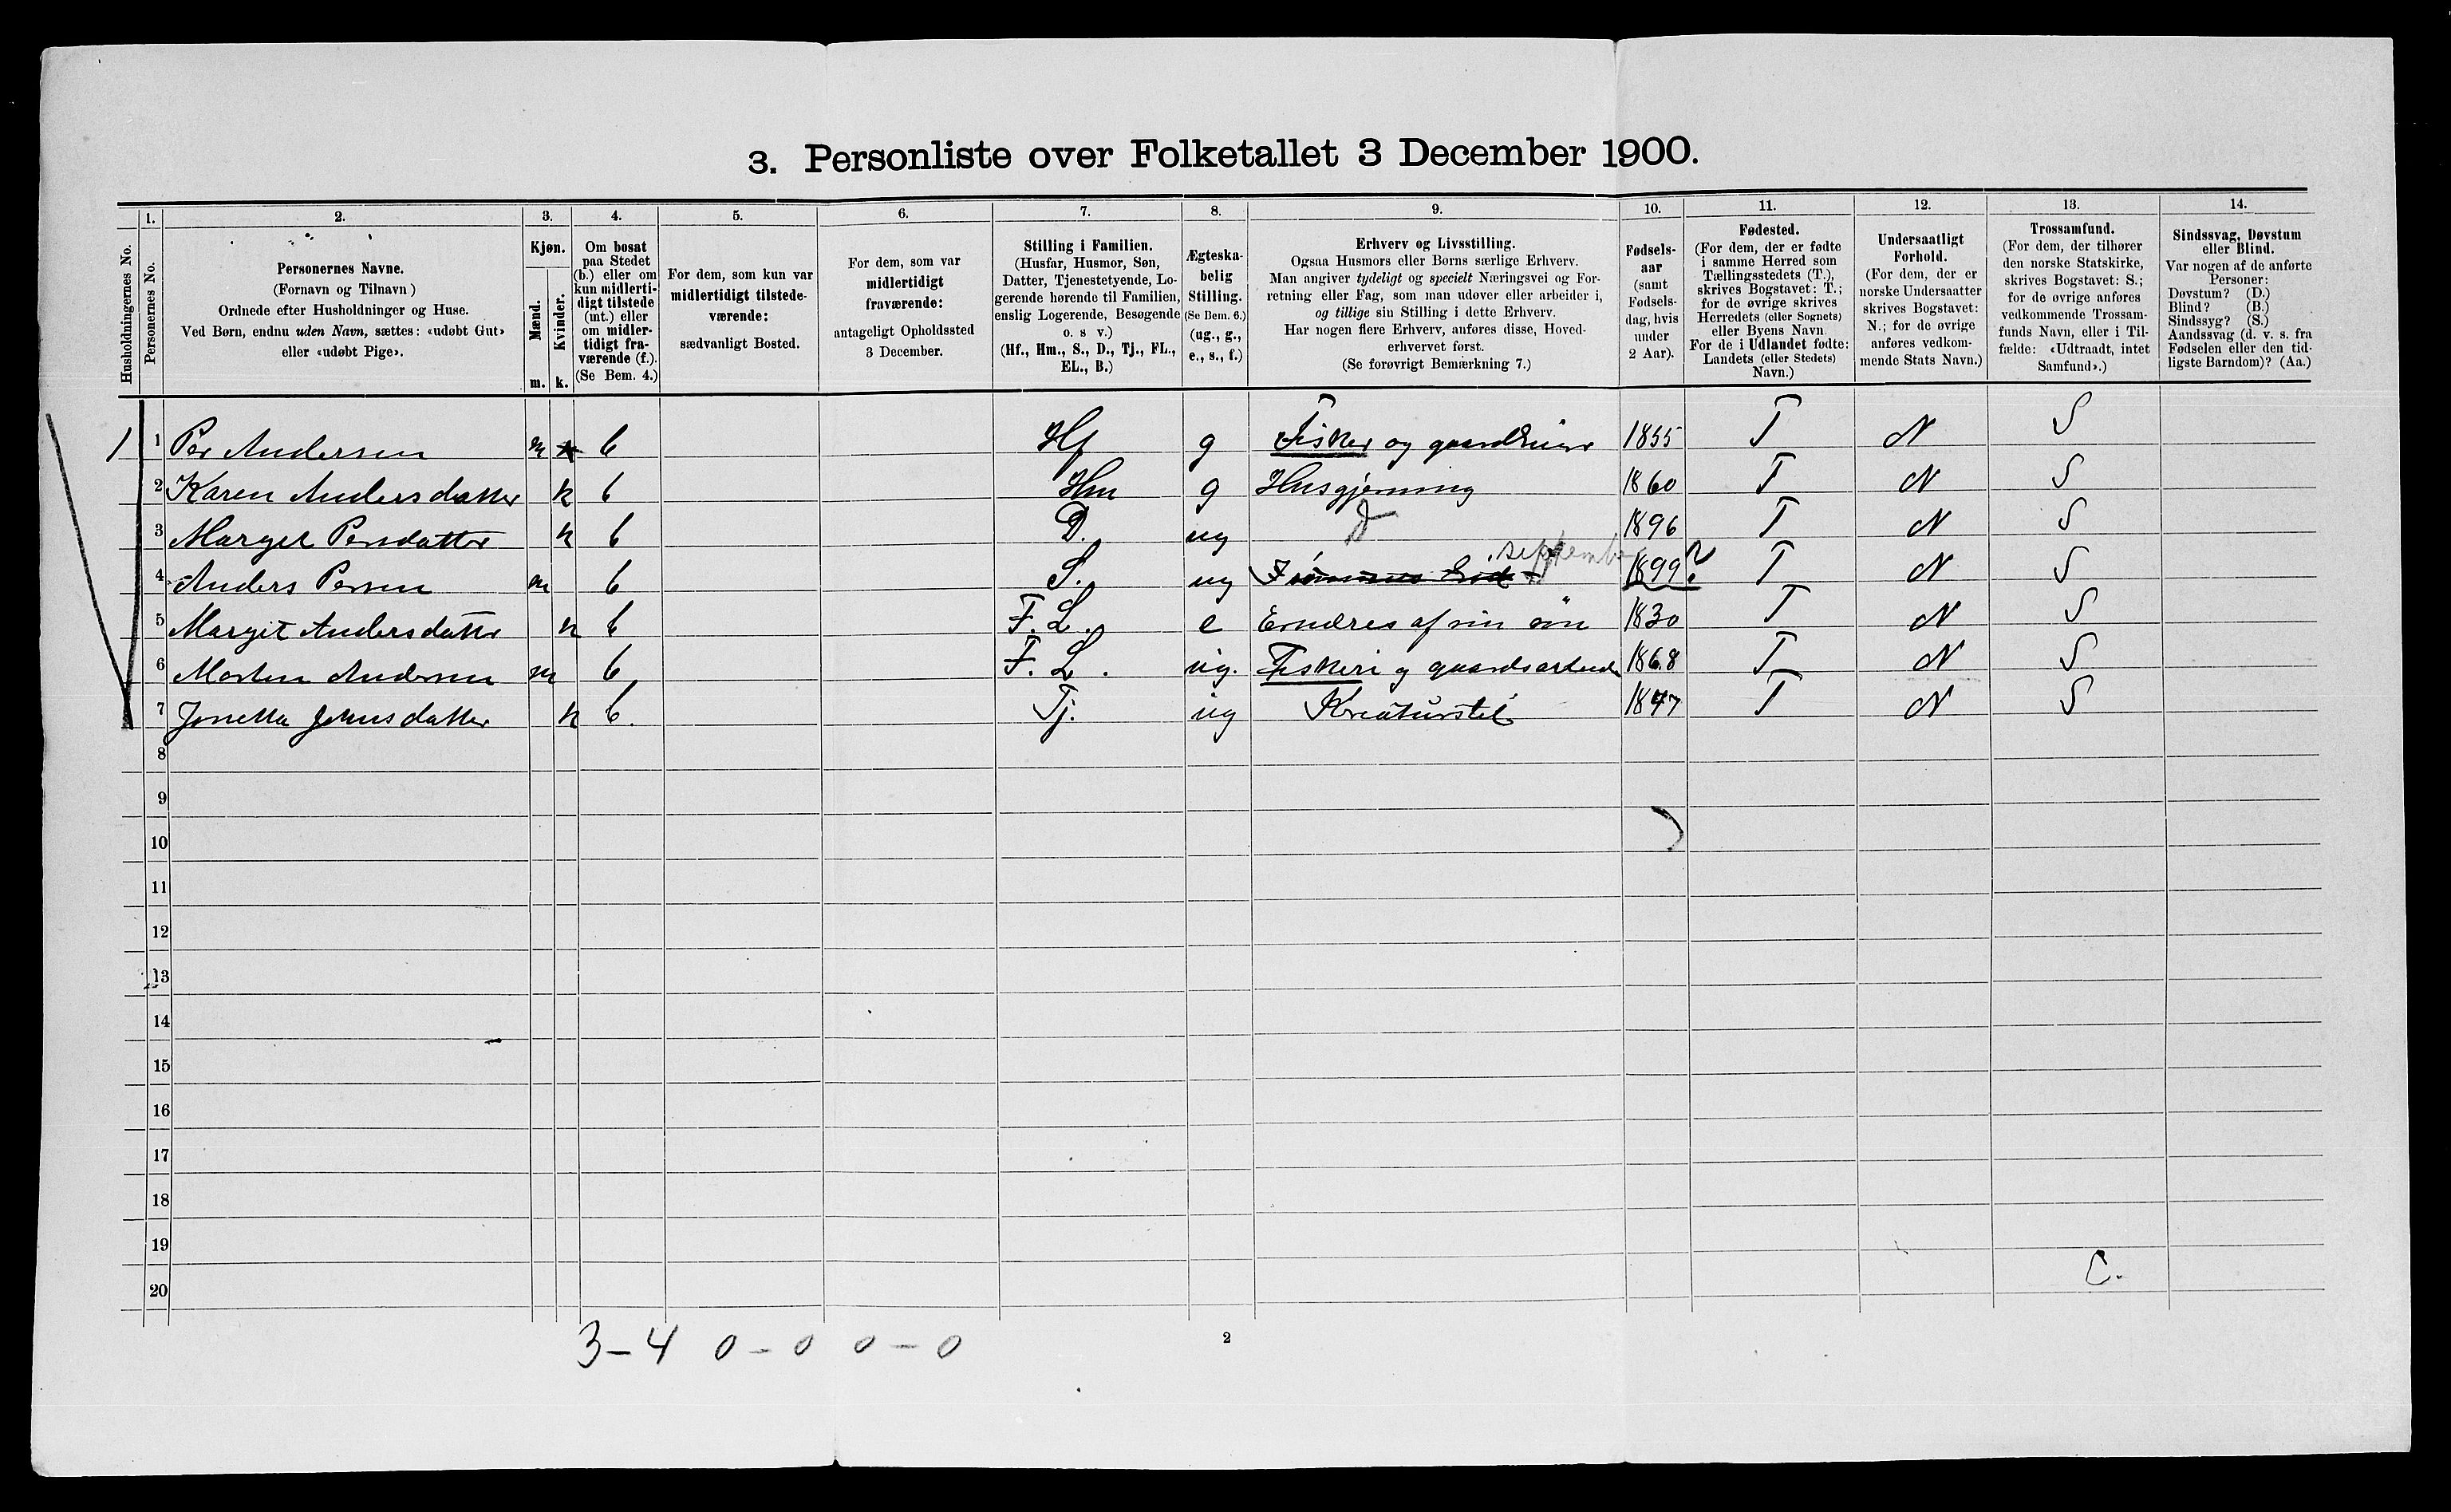 3. Personliste over Folketallet 3 December 1900.
1. 2. 3. 4. 5. 6. 7. 8. 9. 10. 11. 12. 13. 14.
Husholdningernes No.
Personernes No.
Personernes Navne.
(Fornavn og Tilnavn)
Ordnede efter Husholdninger og Huse.
Ved Børn, endnu uden Navn, sættes: «udøbt Gut»
eller «udøbt Pige».
Kjøn.
Mænd.
Kvinder.
m. k.
Om bosat
paa Stedet
(b.) eller om
kun midlerti-
digt tilstede
(mt.) eller
om midler-
tidigt fra-
værende (f.).
(Se Bem. 4.)
For dem, som kun var
midlertidigt tilstede-
værende:
sædvanligt Bosted.
For dem, som var
midlertidigt
fraværende:
antageligt Opholdssted
3 December.
Stilling i Familien.
(Husfar, Husmor, Søn,
Datter, Tjenestetyende, Lo-
gerende hørende til Familien,
enslig Logerende, Besøgende
o. s v.)
(Hf., Hm., S., D., Tj., FL.,
EL., B.)
Ægteska-
belig
Stilling.
(Se Bem. 6.)
(ug., g.,
e., s., f.)
Erhverv og Livsstilling.
Ogsaa Husmors eller Børns særlige Erhverv.
Man angiver tydeligt og specielt Næringsvei og For-
retning eller Fag, som man udøver eller arbeider i,
og tillige sin Stilling i dette Erhverv.
Har nogen flere Erhverv, anføres disse, Hoved-
erhvervet først.
(Se forøvrigt Bemærkning 7.)
Fødsels-
aar
(samt
Fødsels-
dag, hvis
under
2 Aar).
Fødested.
(For dem, der er fødte
i samme Herred som
Tællingsstedets (T.),
skrives Bogstavet: T.;
for de øvrige skrives
Herredets (eller Sognets)
eller Byens Navn.
For de i Udlandet fødte:
Landets (eller Stedets)
Navn.)
Undersaatligt
Forhold.
(For dem, der er
norske Undersaatter
skrives Bogstavet:
N.; for de øvrige
anføres vedkom-
mende Stats Navn.)
Trossamfund.
(For dem, der tilhører
den norske Statskirke,
skrives Bogstavet: S.;
for de øvrige anføres
vedkommende Trossam-
funds Navn, eller i Til-
fælde: «Udtraadt, intet
Samfund».)
Sindssvag, Døvstum
eller Blind.
Var nogen af de anførte
Personer:
Døvstum? (D.)
Blind? (B.)
Sindssyg? (S.)
Aandssvag (d. v. s. fra
Fødselen eller den tid-
ligste Barndom)? (Aa.)
1 1 Per Andersen m k b Hf g Fisker og gaardbruger 1855 T N S
2 Karen Andersdatter k b Hm g Husgjerning 1860 T N S
3 Marget Persdatter k b D. ug 1896 T N S
september
4 Anders Persen m b S. ug 1899 ? T N S
5 Margit Andersdatter k b F. L. e Ernæres af sin søn 1830 T N S
6 Morten Andersen m b F. L. ug. Fiskeri og gaardsarbeide 1868 T N S
7 Jonetta Johnsdatter k b. Tj. ug Kreaturstel 1847 T N S
8
9
10
11
12
13
14
15
16
17
18
19
20
C.
3-4 0-0 0-0
2